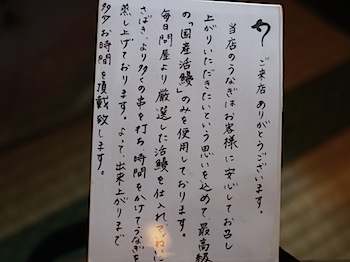 ご来店ありがとうございます。
当店のうなぎはお客様に安心してお召し
上がりいただきたいという思いを込めて、最高級
の「国産活鰻」のみを使用しております。
毎日問屋より厳選した活鰻を仕入れ、ていねいに
さばき、より多くの串を打ち時間をかけてうなぎを
蒸し上げております。よって、出来上がりまで
多少お時間を頂戴致します。